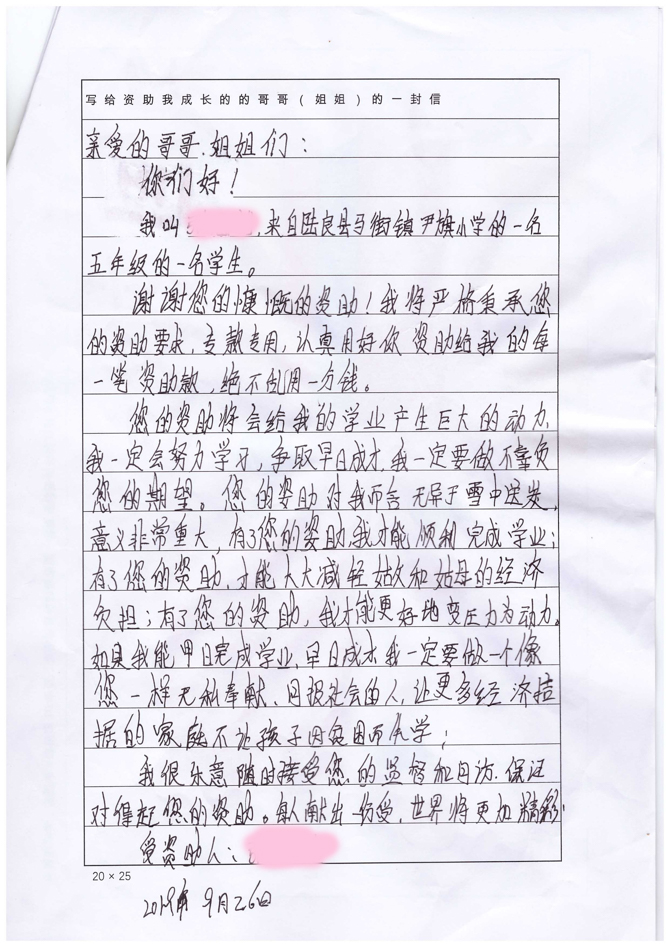 写给资助我成长的的哥哥(姐姐)的一封信
亲爱的哥哥.姐姐们：
你们好！
我叫 ,来自陆良县马街镇尹旗小学的一名
五年级的一名学生。
谢谢您的慷慨的资助！我将严格秉承您
的资助要求,专款专用,认真用好你资助给我的每
一笔资助款,绝不乱用一分钱。
您的资助将会给我的学业产生巨大的动力,
我一定会努力学习,争取早日成才,我一定要做不辜负
您的期望。您的资助对我而言无异于雪中送炭,
意义非常重大,有了您的资助,我才能顺利完成学业;
有了您的资助,才能大大减轻姑父和姑母的经济
负担;有了您的资助,我才能更好地变压力为动力。
如果我能早日完成学业,早日成才,我一定要做一个像
您一样无私奉献、回报社会的人,让更多经济拮
据的家庭不让孩子因贫困而失学;
我很乐意随时接受您的监督和回访.保证
对得起您的资助。每人献出一份爱,世界将更加精彩.
受资助人：
20×25
2019年9月26日